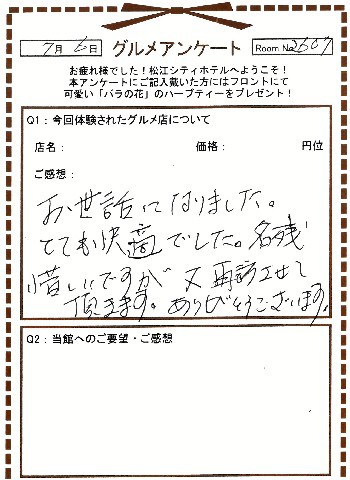 7月6日 グルメアンケート Room No.2607
お疲れ様でした！松江シティホテルへようこそ！
本アンケートにご記入戴いた方にはフロントにて
可愛い「バラの花」のハーブティーをプレゼント！
Q1：今回体験されたグルメ店について
店名： 価格： 円位
ご感想：
お世話になりました。
とても快適でした。名残
惜しいですが又再訪させて
頂きます。ありがとうございます。
Q2：当館へのご要望・ご感想